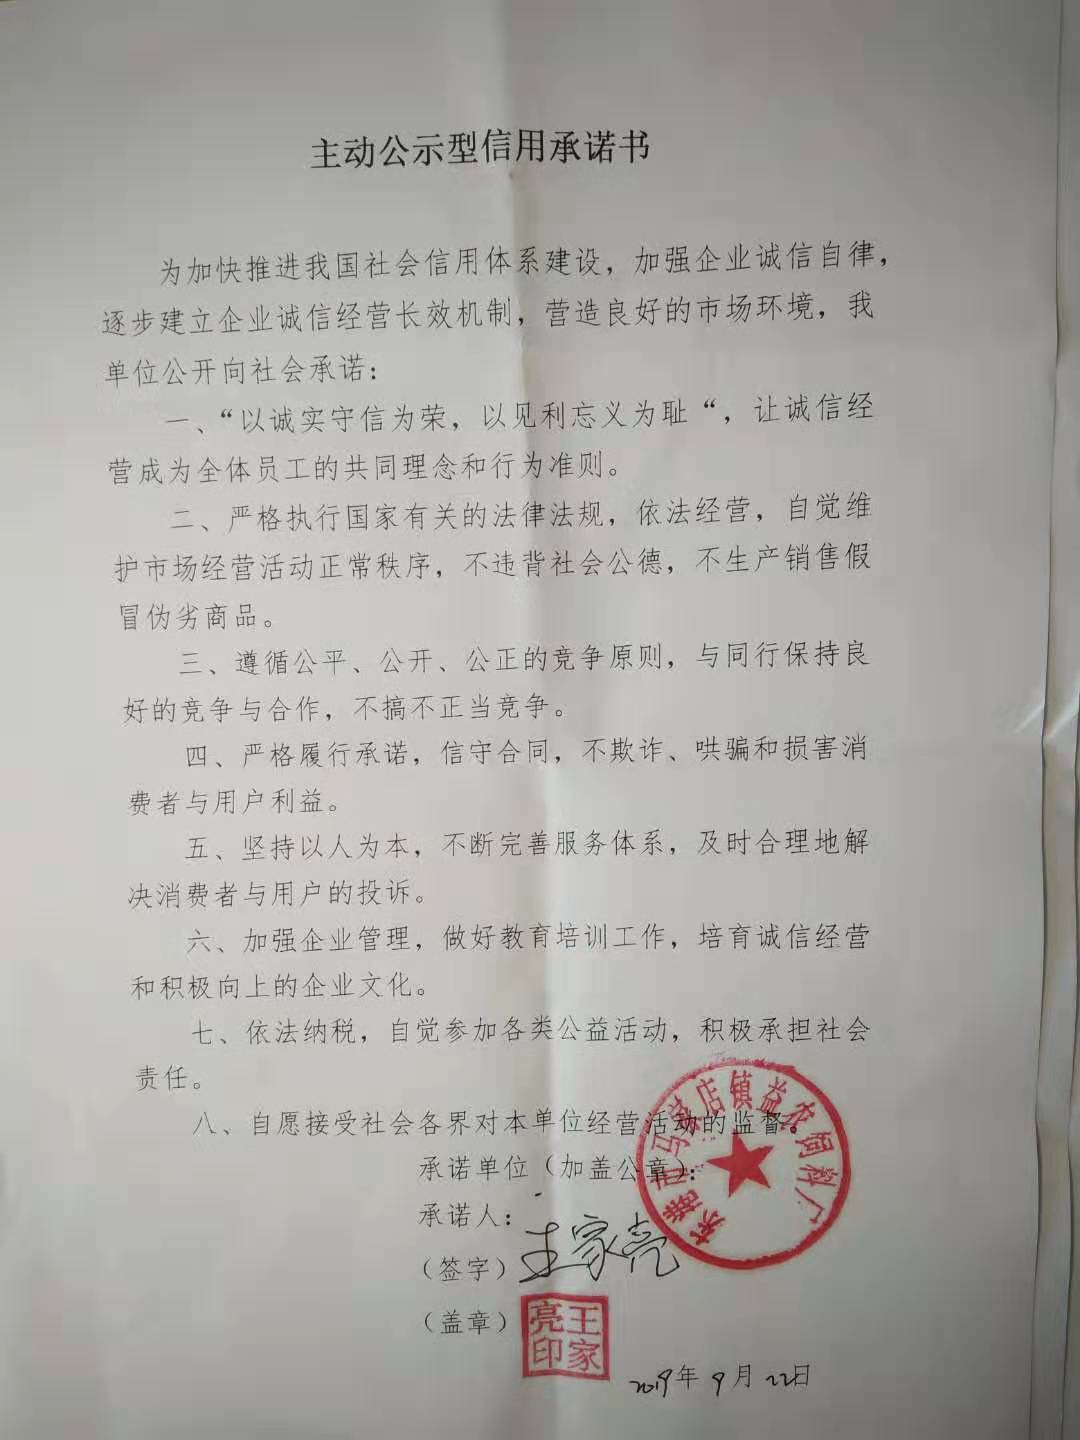 主动公示型信用承诺书
为加快推进我国社会信用体系建设，加强企业诚信自律，
逐步建立企业诚信经营长效机制，营造良好的市场环境，我
单位公开向社会承诺：
一、“以诚实守信为荣，以见利忘义为耻“，让诚信经
营成为全体员工的共同理念和行为准则。
二、严格执行国家有关的法律法规，依法经营，自觉维
护市场经营活动正常秩序，不违背社会公德，不生产销售假
冒伪劣商品。
三、遵循公平、公开、公正的竞争原则，与同行保持良
好的竞争与合作，不搞不正当竞争。
四、严格履行承诺，信守合同，不欺诈、哄骗和损害消
费者与用户利益。
五、坚持以人为本，不断完善服务体系，及时合理地解
决消费者与用户的投诉。
六、加强企业管理，做好教育培训工作，培育诚信经营
和积极向上的企业文化。
七、依法纳税，自觉参加各类公益活动，积极承担社会
责任。
八、自愿接受社会各界对本单位经营活动的监督。
承诺单位（加盖公章）：
市马 店镇益农饲料厂
承诺人：
（签字）王家亮
（盖章）
王家亮印
2019年9月22日